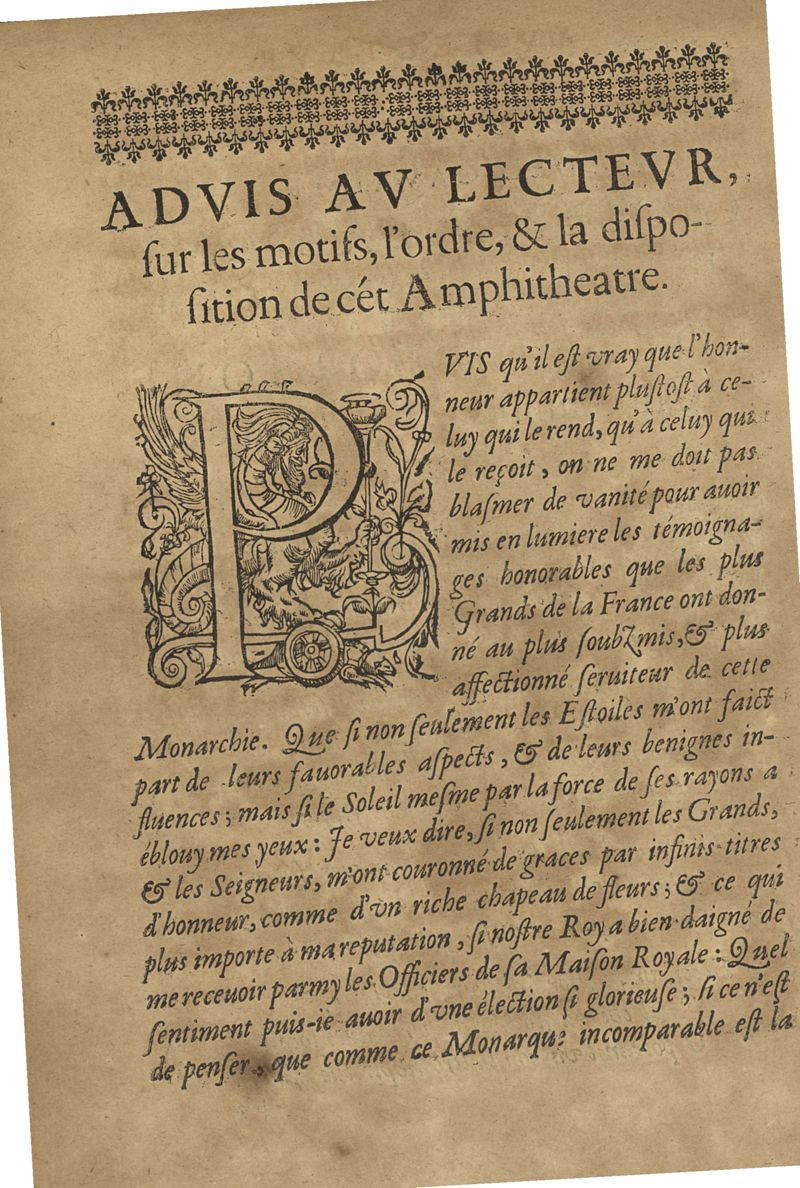 ADVIS AV LECTEVR,
ſur les motifs, l'ordre, & la diſpo-
ſition de cét Amphitheatre.
PVIS qu'il eſt vray que l'hon-
neur appartient pluſtoſt à ce-
luy qui le rend, qu'à celuy qui
le reçoit, on ne me doit pas
blaſmer de vanité pour auoir
mis en lumiere les témoigna-
ges honorables que les plus
Grands de la France ont don-
né au plus ſoubZmis, & plus
affectionné ſeruiteur de cette
Monarchie. Que ſi non ſeulement les Eſtoiles m'ont faict
part de leurs fauorables aſpects, & de leurs benignes in-
fluences; mais ſi le Soleil meſme par la force de ſes rayons a
éblouy mes yeux: Je veux dire, ſi non ſeulement les Grands,
& les Seigneurs, m'ont couronné de graces par infinis titres
d'honneur, comme d'vn riche chapeau de fleurs; & ce qui
plus importe à ma reputation, ſi noſtre Roy a bien daigné de
me receuoir parmy les Officiers de ſa Maiſon Royale: Quel
ſentiment puis-ie auoir d'vne élection ſi glorieuſe; ſi ce n'eſt
de penſer, que comme ce Monarque incomparable eſt la